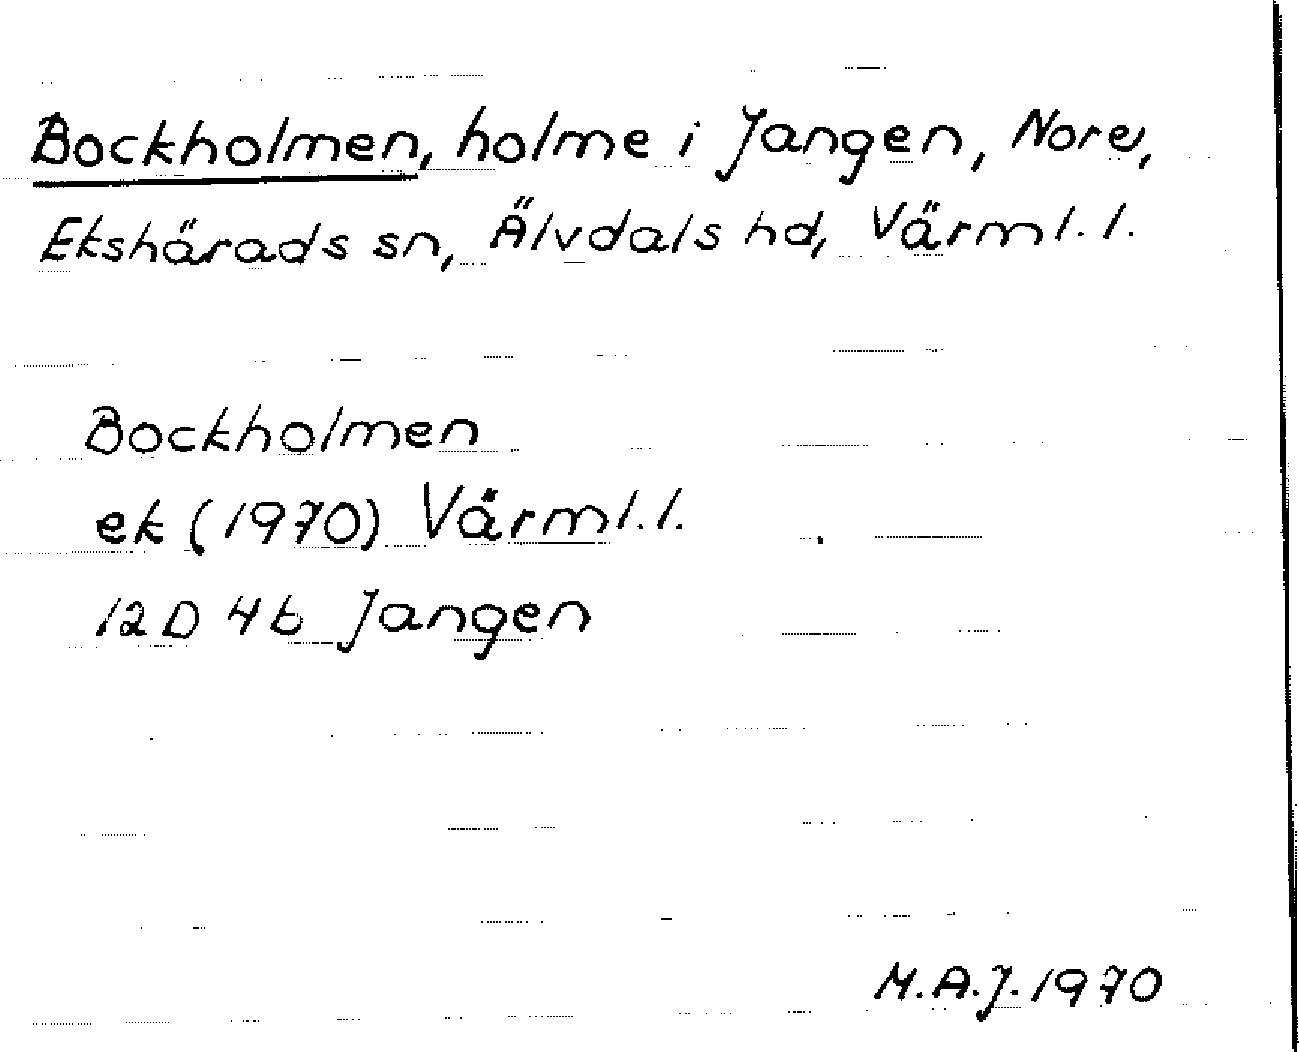 Bockholmen, holme i Jangen, Nore,
Ekshärads sn, Älvdals hd, Värml. l.
Bockholmen
ek (1970) Värml. l.
12D 4b Jangen
M.A.J. 1970